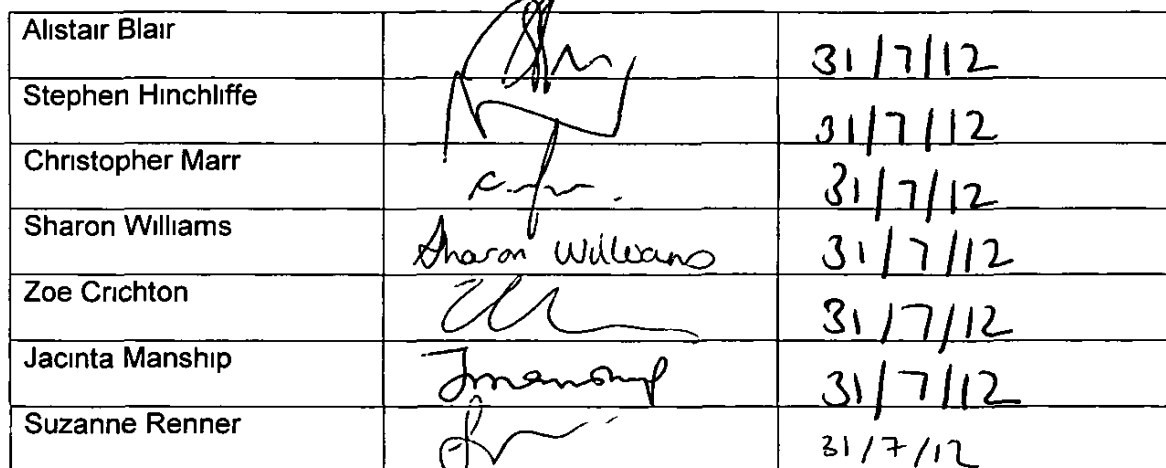 Alistair Blair 31/7/12
Stephen Hinchliffe 31/7/12
Christopher Marr 31/7/12
Sharon Williams Sharon Williams 31/7/12
Zoe Crichton 31/7/12
Jacinta Manship Jmanship 31/7/12
Suzanne Renner 31/7/12